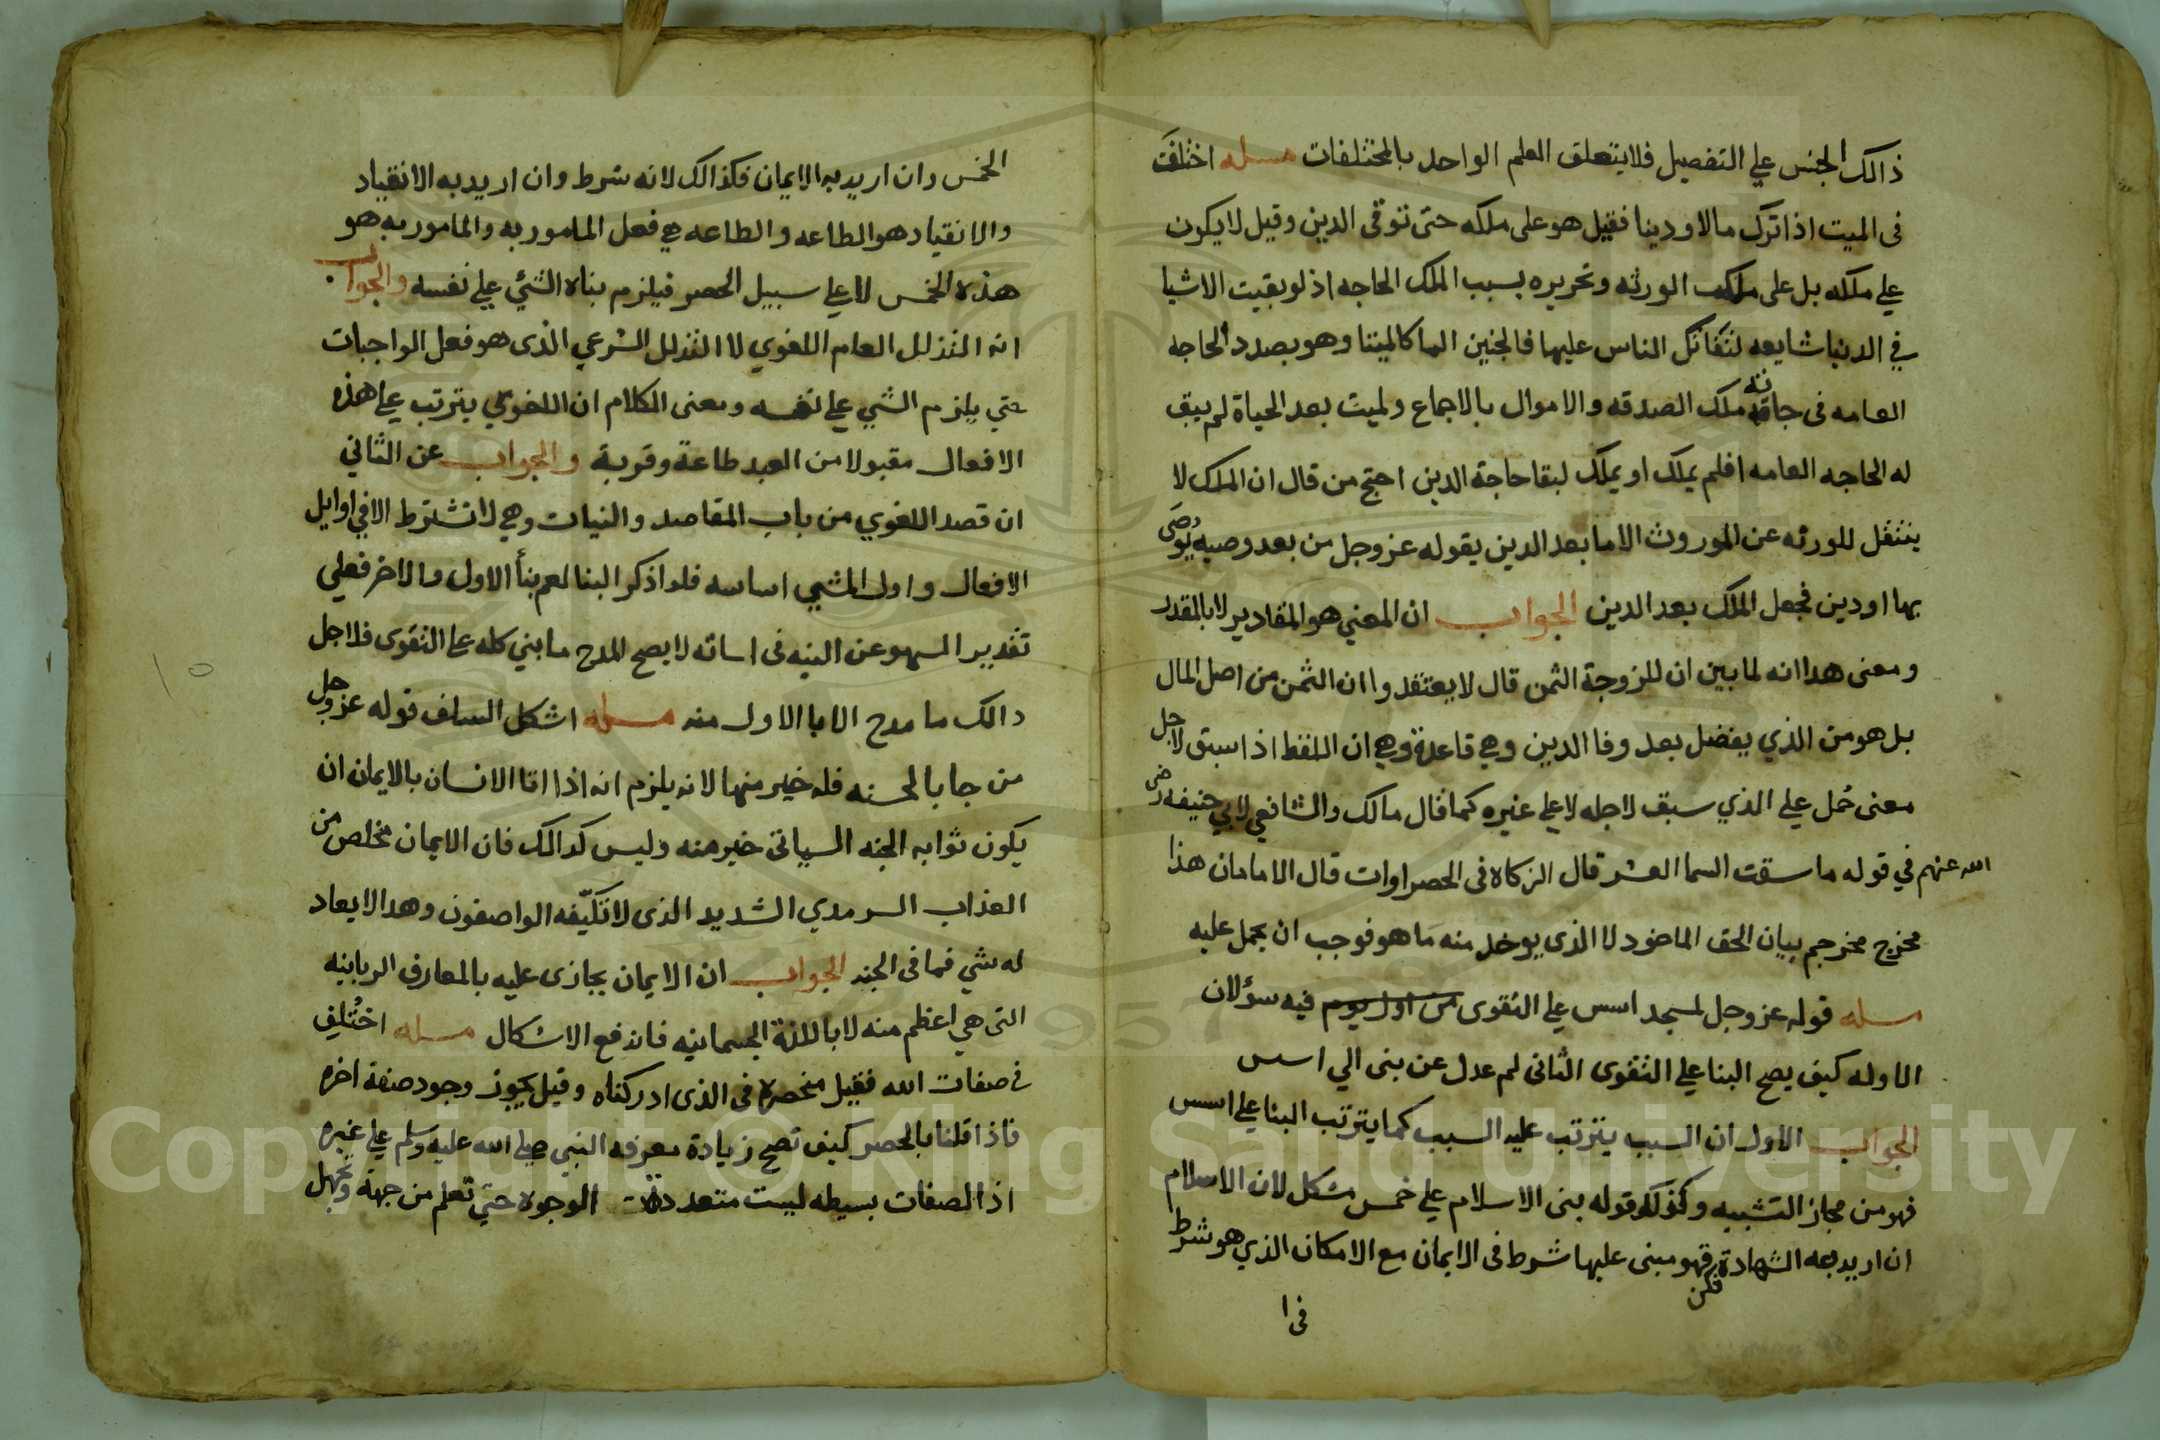 ذالك الجنس علي التفصيل فلا يتعلق العلم الواحد بالمختلفات مسله اختلف
فى الميت اذا ترك مالا ودينا فقيل هو على ملكه حتى توقى الدين وقيل لا يكون
علي ملكه بل على ملك الورثه وتحريره بسبب الملك الحاجه اذ لو بقيت الاشيا
في الدنيا شايعه لتقاتل الناس عليها فالجنين الما كالميتا وهو بصدد الحاجه
العامه فى جاقته ملك الصدقه والاموال بالاجماع ولميت بعد الحياة لم يبق
له الحاجه العامه افلم يملك او يملك لبقا حاجة الدين احتج من قال ان الملك لا
ينتقل للورثه عن الموروث الاما بعد الدين بقوله عز وجل من بعد وصيه يوصى
بها او دين فجعل الملك بعد الدين الجواب ان المعني هو المقادير لا بالمقدر
ومعنى هدا انه لما بين ان للزوجة الثمن قال لا يعتقدوا ان الثمن من اصل المال
بل هو من الذي يفضل بعد وفا الدين وهي قاعدة وهي ان اللفظ اذا سبق لاجل
معنى حمل علي الذي سبق لاجله لا علي غيره كما قال مالك والشافعي لابي حنيفه رضى
الله عنهم في قوله ما سقت السما العشر قال الزكاة فى الحصراوات قال الامامان هذا
مخرج مخرجم بيان الحق الماخود لا الذى يوخد منه ما هو فوجب ان يحمل عليه
مسله قوله عز وجل لمسجد اسس علي التقوى من اول يوم فيه سؤلان
الاوله كيف يصح البنا علي التقوى الثانى لم عدل عن بنى الي اسس
الجواب الاول ان السبب يترتب عليه السبب كما يترتب البنا علي اسس
فهو من مجاز التشبيه وكذلك قوله بنى الاسلام علي خمس مشكل لان الاسلام
ان اريد به الشهادة فهو مبنى عليها شرط فى الايمان مع الامكان الذي هو شرط
فى ا
الخمس وان اريد به الايمان فكذالك لانه شرط وان اريد به الانقياد
والانقياد هو الطاعه والطاعه هي فعل المامور به والمامور به هو
هذه الخمس لا علي سبيل الحصر فيلزم بناه الشئ علي نفسه والجواب
انه التذلل العام اللغوي لا التذلل الشرعي الذى هو فعل الواجبات
حتي يلزم الشي علي نفسه ومعنى الكلام ان اللغوي يترتب علي هذه
الافعال مقبولا من العبد طاعة وقربة والجواب عن الثاني
ان قصد اللغوي من باب المقاصد والنيات وهي لا تشترط الا في اوايل
الافعال واول المشي اساسه فلو اذكر البنا لعم بنأ الاول والاخر فعلي
تقدير السهو عن النيه فى اساته لا يصح المدح ما بني كله علي التقوى فلاجل
دالك ما مدح الا با الاول منه مسله اشكل السلف قوله عز وجل
من جا بالحسنه فله خير منها لانه يلزم انه اذا اتا الانسان بالايمان ان
يكون ثوابه الجنه السياتى خير منه وليس كدالك فان الايمان مخلص من
العذاب السرمدي الشديد الذى لا تكيّفه الواصفون وهدا الايعاد
له شي فما فى الجنه الجواب ان الايمان يجازى عليه بالمعارف الربانيه
التى هي اعظم منه لا باللذة الجسمانيه فاندفع الاشكال مسله اختلف
في صفات الله فقيل منحصرة فى الذى ادركناه وقيل يجوز وجود صفة اخره
فاذا قلنا بالحصر كيف تصح زيادة معرفه النبي صلي الله عليه وسلم علي غيره
اذ الصفات بسيطه ليست متعددات الوجوه حتي تعلم من جهة وتجهل
١٥
Copyright © King Saud University
1957